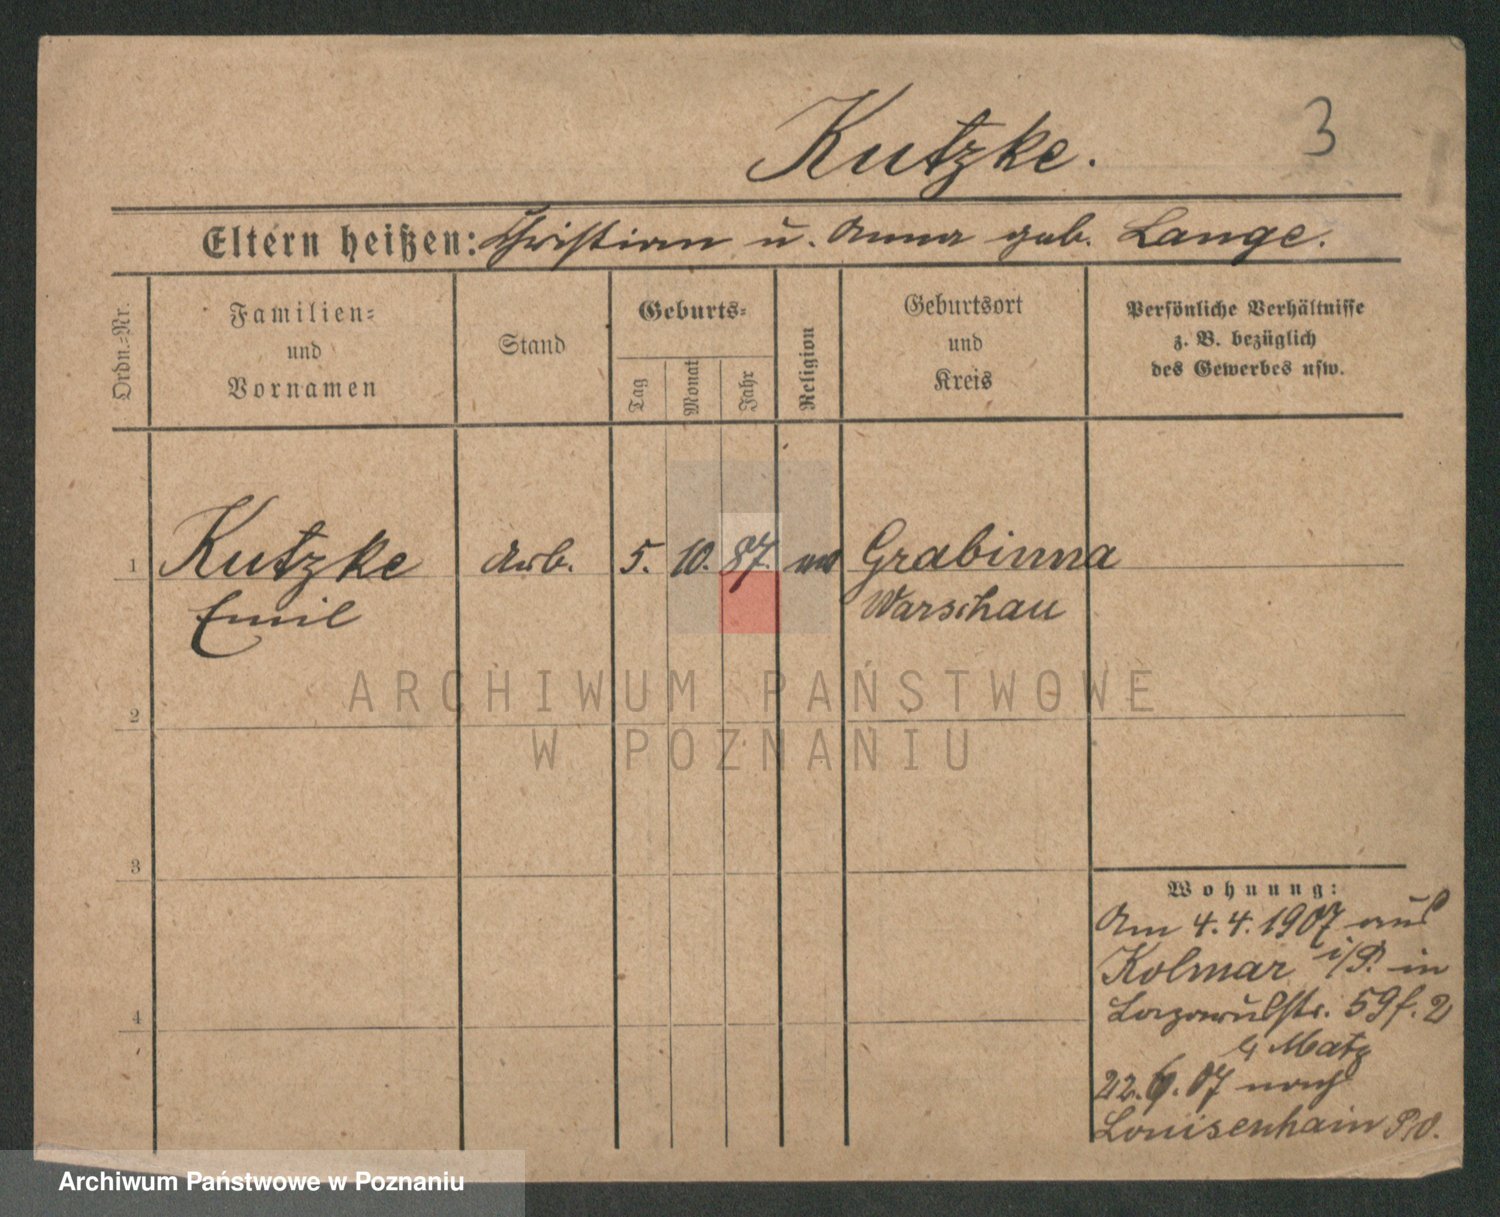 Kutzke.
3
Eltern heißen: Christian u. Anna geb. Lange.
Ordn.-Nr.
Familien=
und
Vornamen
Stand
Geburts=
Tag
Monat
Jahr
Religion
Geburtsort
und
Kreis
Persönliche Verhältnisse
z. B. bezüglich
des Gewerbes usw.
1 Kutzke Arb. 5. 10. 87. Grabinna
Emil Warschau
ARCHIWUM PAŃSTWOWE
W POZNANIU
2
3
4
Wohnung:
Am 4.4.1907 aus
Kolmar i/P. in
Lazarusstr. 59 f. 2
b Matz
22.6.07 nach
Louisenhain P/O.
Archiwum Państwowe w Poznaniu